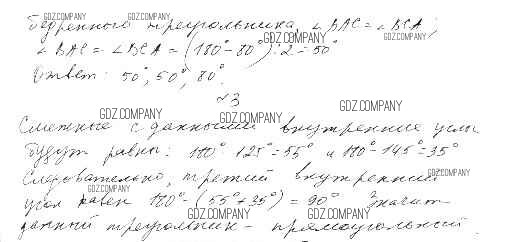 бедренного треугольника, ∠BAC = ∠BCA;
∠BAC = ∠BCA = (180° - 80°) : 2 = 50°
Ответ: 50°, 50°, 80°.
№3
Смежные с данными внутренние углы
будут равны: 180° - 125° = 55° и 180° - 145° = 35°
Следовательно, третий внутренний
угол равен 180° - (55° + 35°) = 90° Значит
данный треугольник - прямоугольный.
GDZ.COMPANY
GDZ.COMPANY
GDZ.COMPANY
GDZ.COMPANY
GDZ.COMPANY
GDZ.COMPANY
GDZ.COMPANY
GDZ.COMPANY
GDZ.COMPANY
GDZ.COMPANY